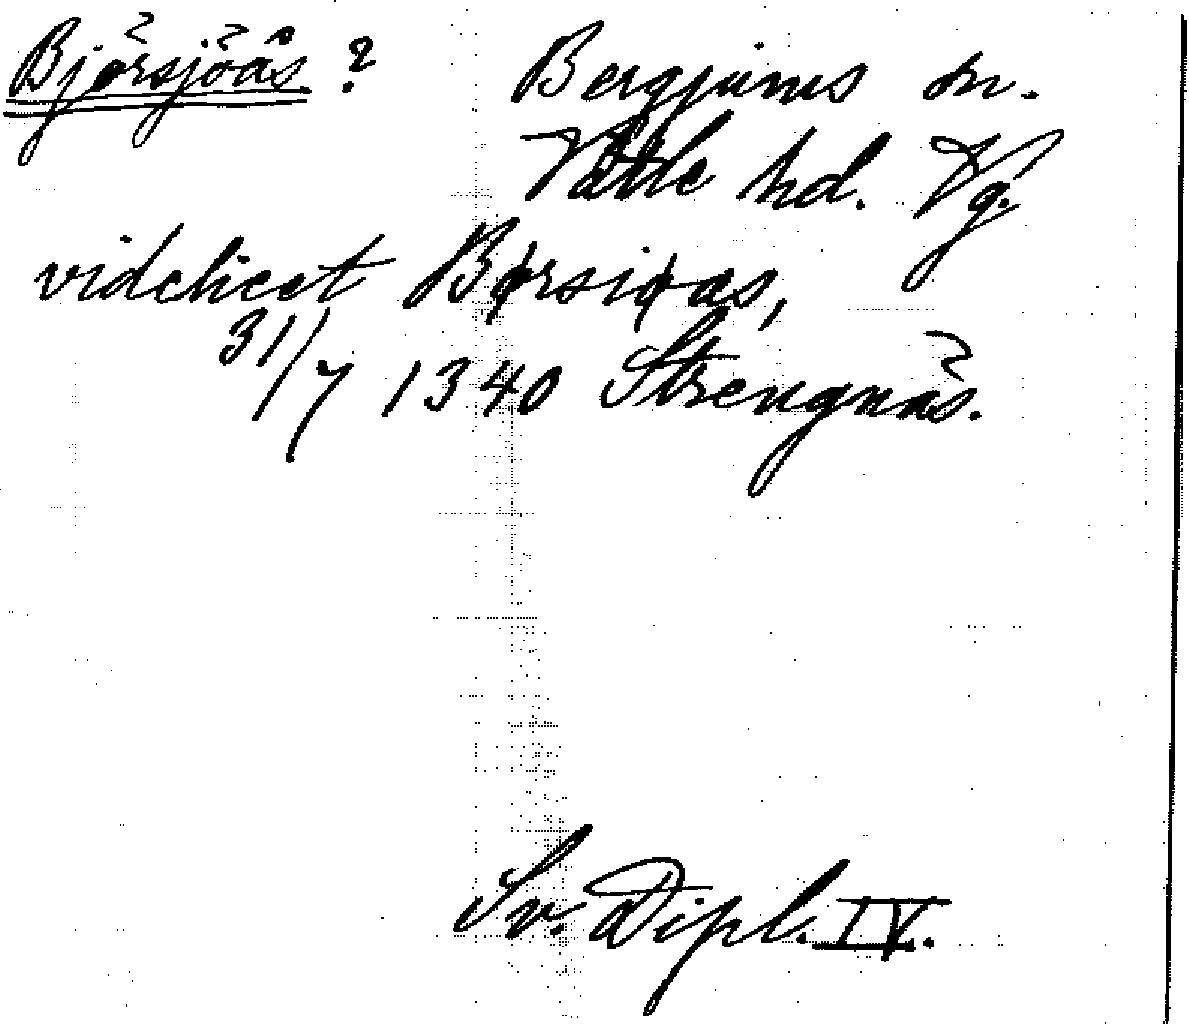 Björsjöås? Bergjums sn.
Vättle hd. Vg.
videlicet Børsiøas,
31/7 1340 Strengnäs.
Sv. Dipl. IV.